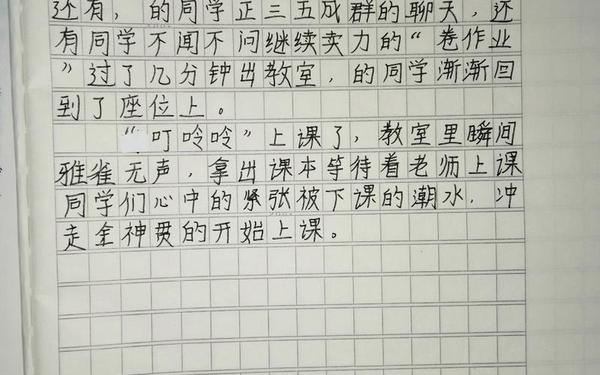 还有，的同学正三五成群的聊天，还
有同学不闻不问继续卖力的“卷作业
”过了几分钟出教室，的同学渐渐回
到了座位上。
“叮呤呤”上课了，教室里瞬间
雅雀无声，拿出课本等待着老师上课
同学们心中的紧张被下课的潮水，冲
走全神贯的开始上课。